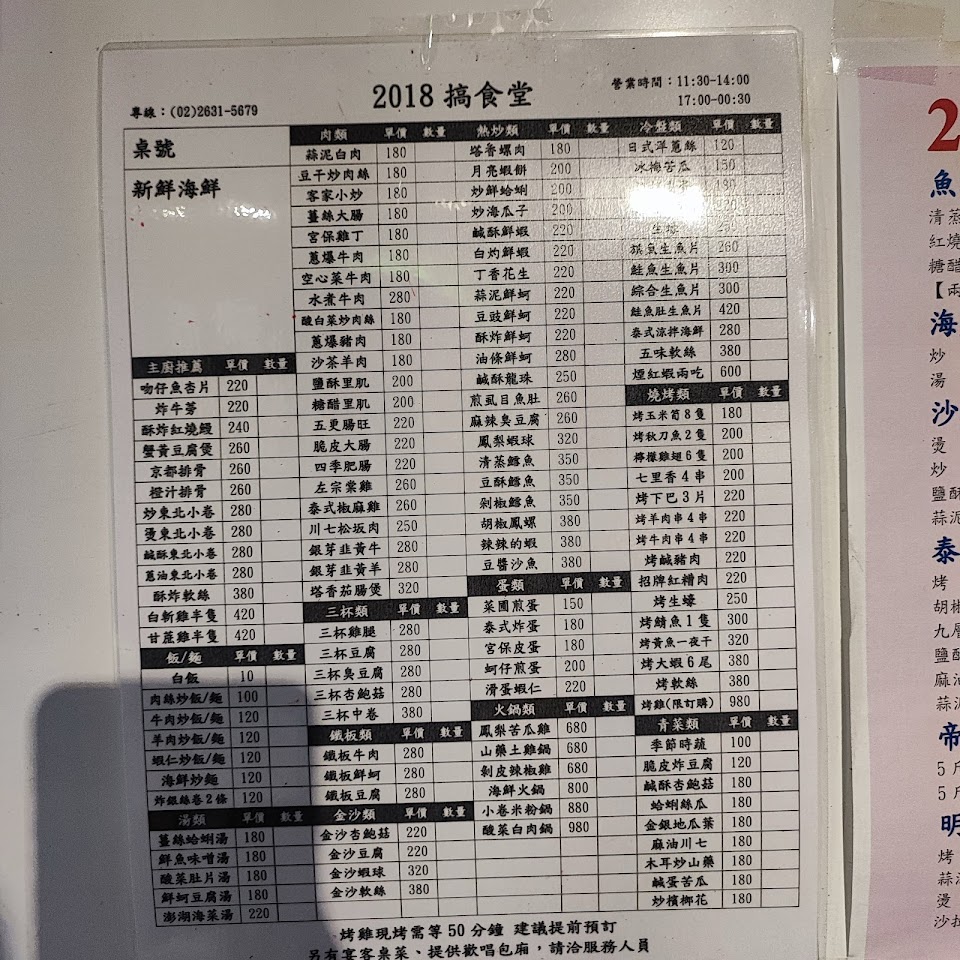 2018 搞食堂
專線：(02)2631-5679
營業時間：11:30-14:00
17:00-00:30
桌號
新鮮海鮮
主廚推薦 單價 數量
吻仔魚杏片 220
炸牛蒡 220
酥炸紅燒鰻 240
蟹黃豆腐煲 260
京都排骨 260
橙汁排骨 260
炒東北小卷 280
燙東北小卷 280
鹹酥東北小卷 280
蔥油東北小卷 280
酥炸軟絲 380
白斬雞半隻 420
甘蔗雞半隻 420
飯/麵 單價 數量
白飯 10
肉絲炒飯/麵 100
牛肉炒飯/麵 120
羊肉炒飯/麵 120
蝦仁炒飯/麵 120
海鮮炒麵 120
炸銀絲卷2條 120
湯類 單價 數量
薑絲蛤蜊湯 180
鮮魚味噌湯 180
酸菜肚片湯 180
鮮蚵豆腐湯 180
澎湖海菜湯 220
肉類 單價 數量
蒜泥白肉 180
豆干炒肉絲 180
客家小炒 180
薑絲大腸 180
宮保雞丁 180
蔥爆牛肉 180
空心菜牛肉 180
水煮牛肉 280
酸白菜炒肉絲 180
蔥爆豬肉 180
沙茶羊肉 180
鹽酥里肌 200
糖醋里肌 200
五更腸旺 220
脆皮大腸 220
四季肥腸 220
左宗棠雞 260
泰式椒麻雞 260
川七松坂肉 250
銀芽韭黃牛 280
銀芽韭黃羊 280
塔香茄腸煲 320
三杯類 單價 數量
三杯雞腿 280
三杯豆腐 280
三杯臭豆腐 280
三杯杏鮑菇 280
三杯中卷 380
鐵板類 單價 數量
鐵板牛肉 280
鐵板鮮蚵 280
鐵板豆腐 280
金沙類 單價 數量
金沙杏鮑菇 220
金沙豆腐 220
金沙蝦球 320
金沙軟絲 380
熱炒類 單價 數量
塔香螺肉 180
月亮蝦餅 200
炒鮮蛤蜊 200
炒海瓜子 200
鹹酥鮮蝦 220
白灼鮮蝦 220
丁香花生 220
蒜泥鮮蚵 220
豆豉鮮蚵 220
酥炸鮮蚵 220
油條鮮蚵 280
鹹酥龍珠 250
煎虱目魚肚 260
麻辣臭豆腐 260
鳳梨蝦球 320
清蒸鱈魚 350
豆酥鱈魚 350
剁椒鱈魚 350
胡椒鳳螺 380
辣辣的蝦 380
豆醬沙魚 380
蛋類 單價 數量
菜圃煎蛋 150
泰式炸蛋 180
宮保皮蛋 180
蚵仔煎蛋 200
滑蛋蝦仁 220
火鍋類 單價 數量
鳳梨苦瓜雞 680
山藥土雞鍋 680
剝皮辣椒雞 680
海鮮火鍋 800
小卷米粉鍋 880
酸菜白肉鍋 980
冷盤類 單價 數量
日式洋蔥絲 120
冰梅苦瓜 150
旗魚生魚片 260
鮭魚生魚片 300
綜合生魚片 300
鮭魚肚生魚片 420
泰式涼拌海鮮 280
五味軟絲 380
煙紅蝦兩吃 600
燒烤類 單價 數量
烤玉米筍8隻 180
烤秋刀魚2隻 200
檸檬雞翅6隻 200
七里香4串 200
烤下巴3片 220
烤羊肉串4串 220
烤牛肉串4串 220
烤鹹豬肉 220
招牌紅糟肉 220
烤生蠔 250
烤鯖魚1隻 300
烤黃魚一夜干 320
烤大蝦6尾 380
烤軟絲 380
烤雞(限訂購) 980
青菜類 單價 數量
季節時蔬 100
脆皮炸豆腐 120
鹹酥杏鮑菇 180
蛤蜊絲瓜 180
金銀地瓜葉 180
麻油川七 180
木耳炒山藥 180
鹹蛋苦瓜 180
炒檳榔花 180
烤雞現烤需等50分鐘 建議提前預訂
另有宴客桌菜、提供歡唱包廂，請洽服務人員
2
魚
清蒸
紅燒
糖醋
【兩
海
炒
湯
沙
燙
炒
鹽酥
蒜泥
泰
烤
胡椒
九層
鹽酥
麻油
蒜泥
帝
5斤
5斤
明
烤
蒜泥
燙
沙拉